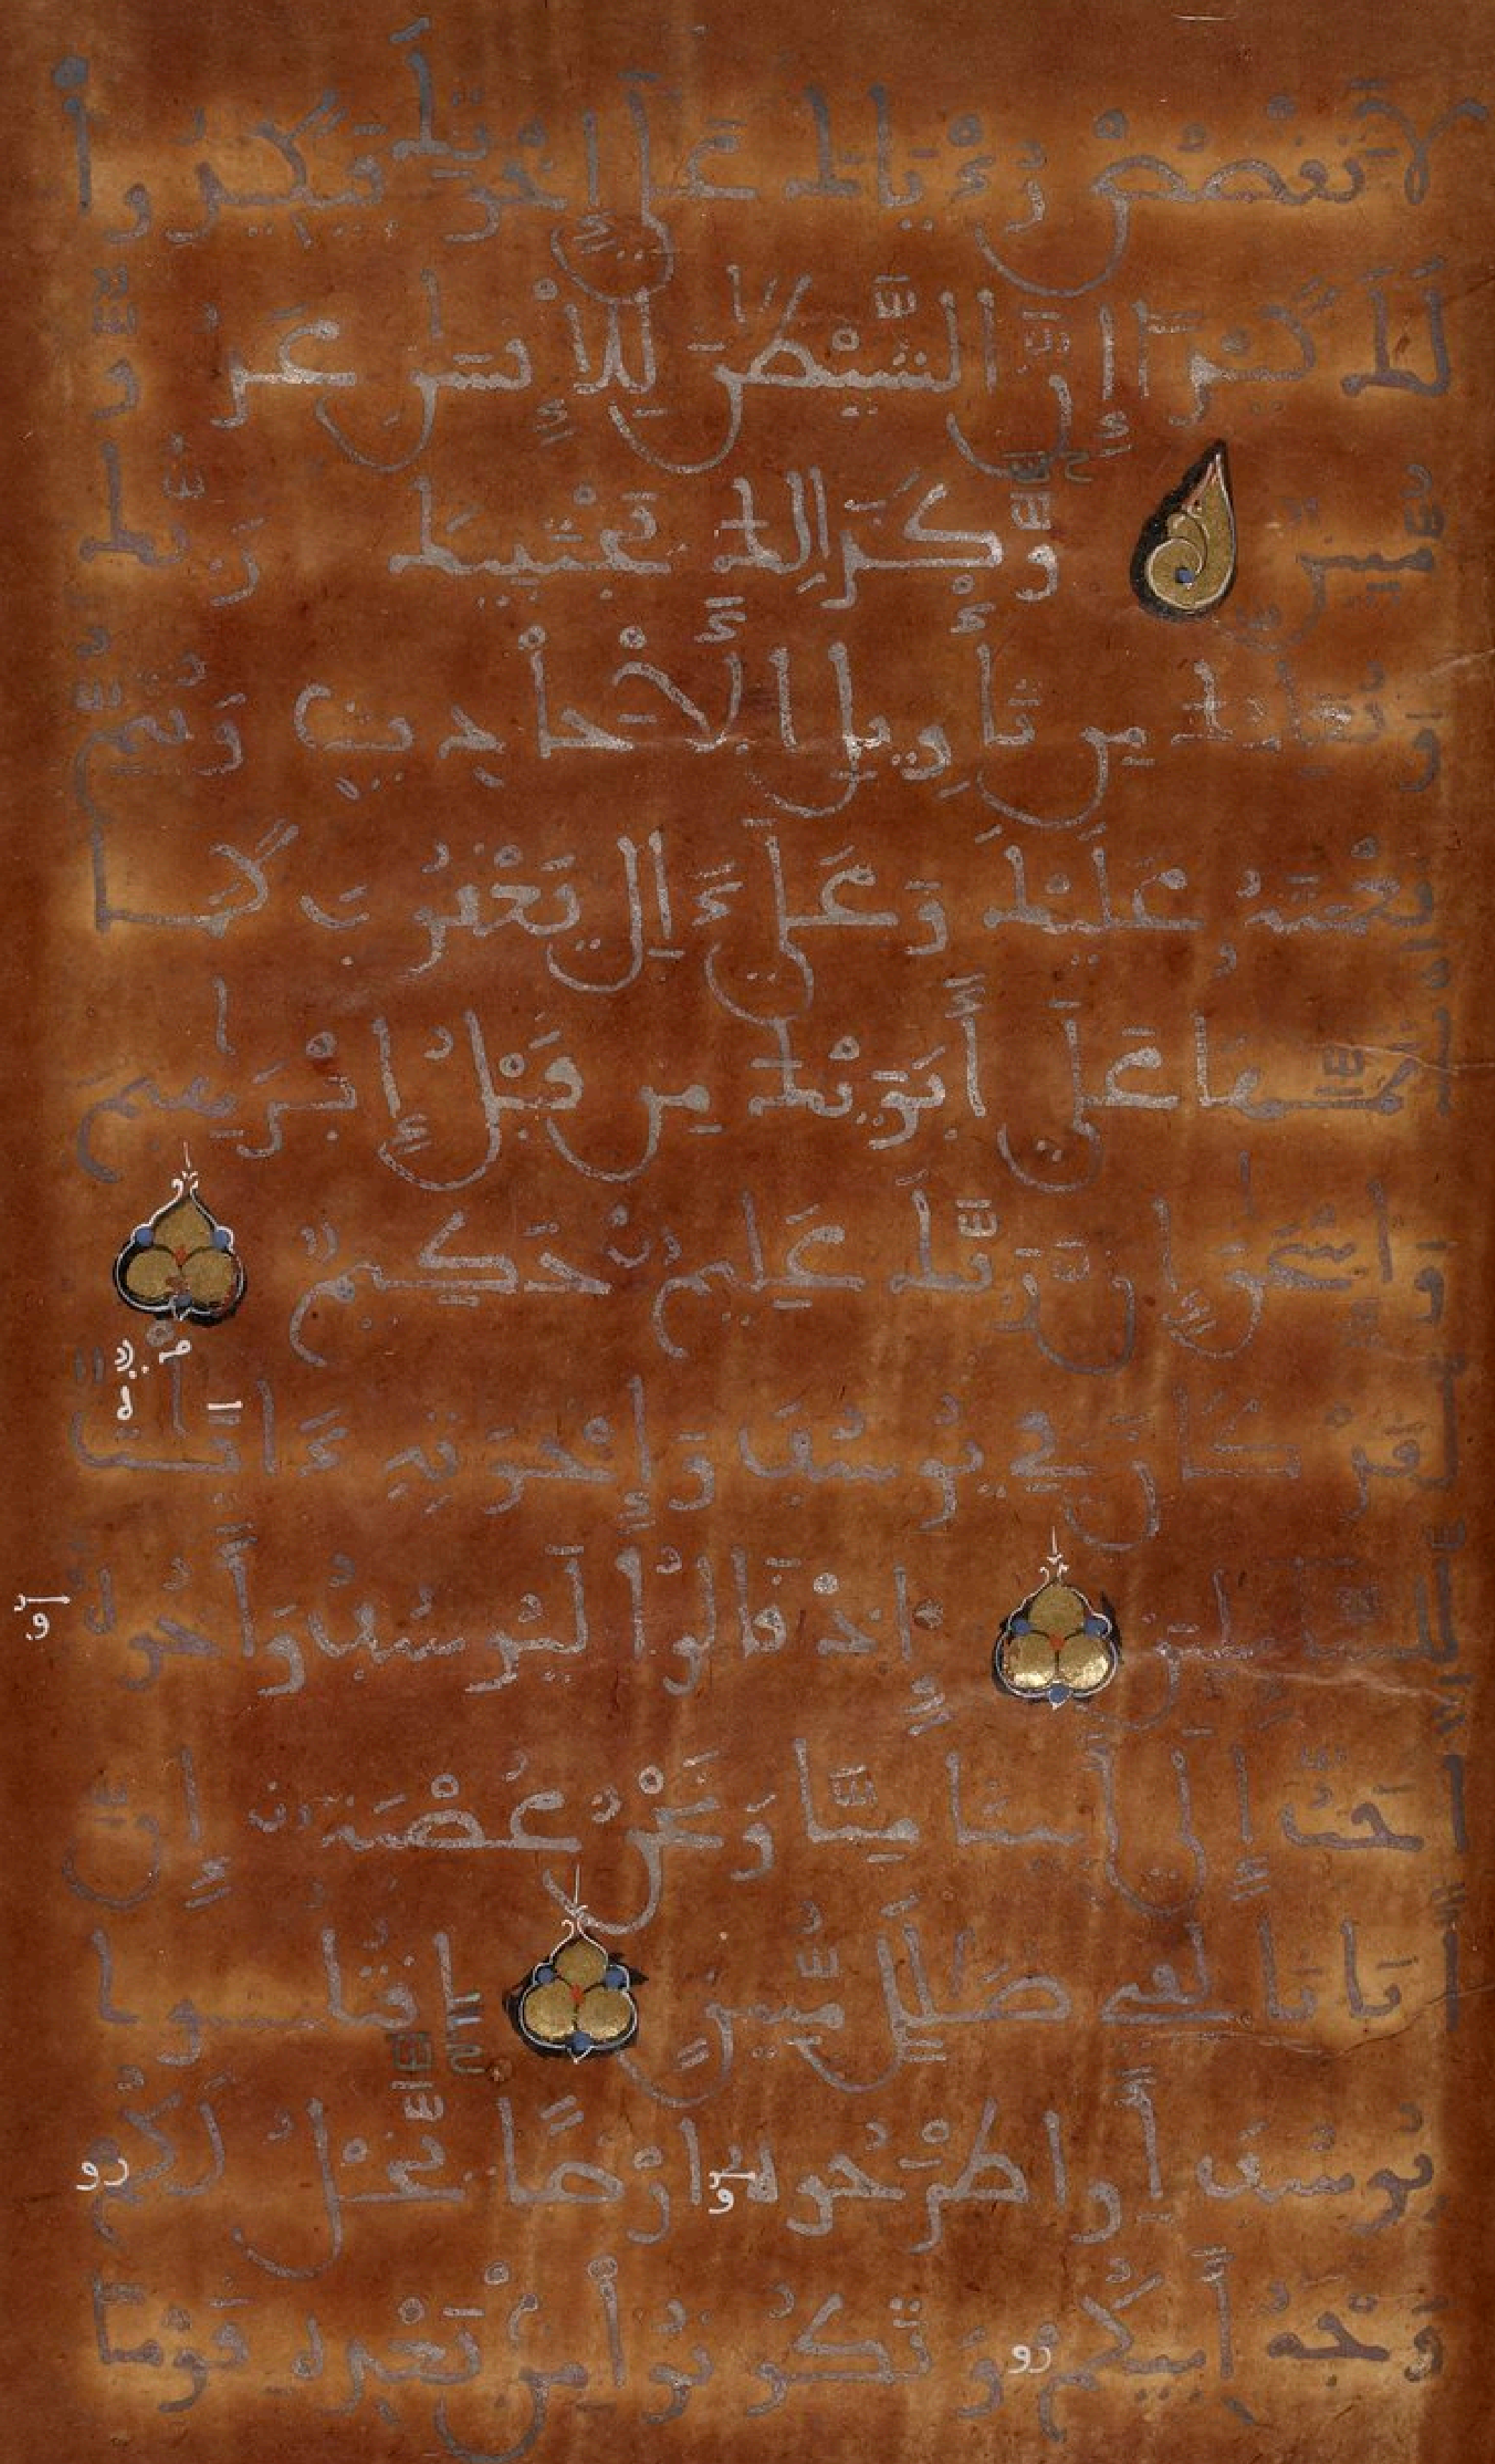 لَا تَقْصُصْ رُءْيَاكَ عَلَىٰ إِخْوَتِكَ فَيَكِيدُواْ
لَكَ كَيْدًا إِنَّ الشَّيْطَٰنَ لِلْإِنسَٰنِ عَدُوٌّ
مُّبِينٌ وَكَذَٰلِكَ يَجْتَبِيكَ رَبُّكَ
وَيُعَلِّمُكَ مِن تَأْوِيلِ الْأَحَادِيثِ وَيُتِمُّ
نِعْمَتَهُۥ عَلَيْكَ وَعَلَىٰ ءَالِ يَعْقُوبَ كَمَا
أَتَمَّهَا عَلَىٰ أَبَوَيْكَ مِن قَبْلُ إِبْرَٰهِيمَ
وَإِسْحَٰقَ إِنَّ رَبَّكَ عَلِيمٌ حَكِيمٌ
لَّقَدْ كَانَ فِي يُوسُفَ وَإِخْوَتِهِ ءَايَٰتٌ
لِّلسَّائِلِينَ إِذْ قَالُواْ لَيُوسُفُ وَأَخُوهُ
أَحَبُّ إِلَىٰ أَبِينَا مِنَّا وَنَحْنُ عُصْبَةٌ إِنَّ
أَبَانَا لَفِي ضَلَٰلٍ مُّبِينٍ اقْتُلُوا
يُوسُفَ أَوِ اطْرَحُوهُ أَرْضًا يَخْلُ لَكُمْ
وَجْهُ أَبِيكُمْ وَتَكُونُواْ مِن بَعْدِهِ قَوْمًا